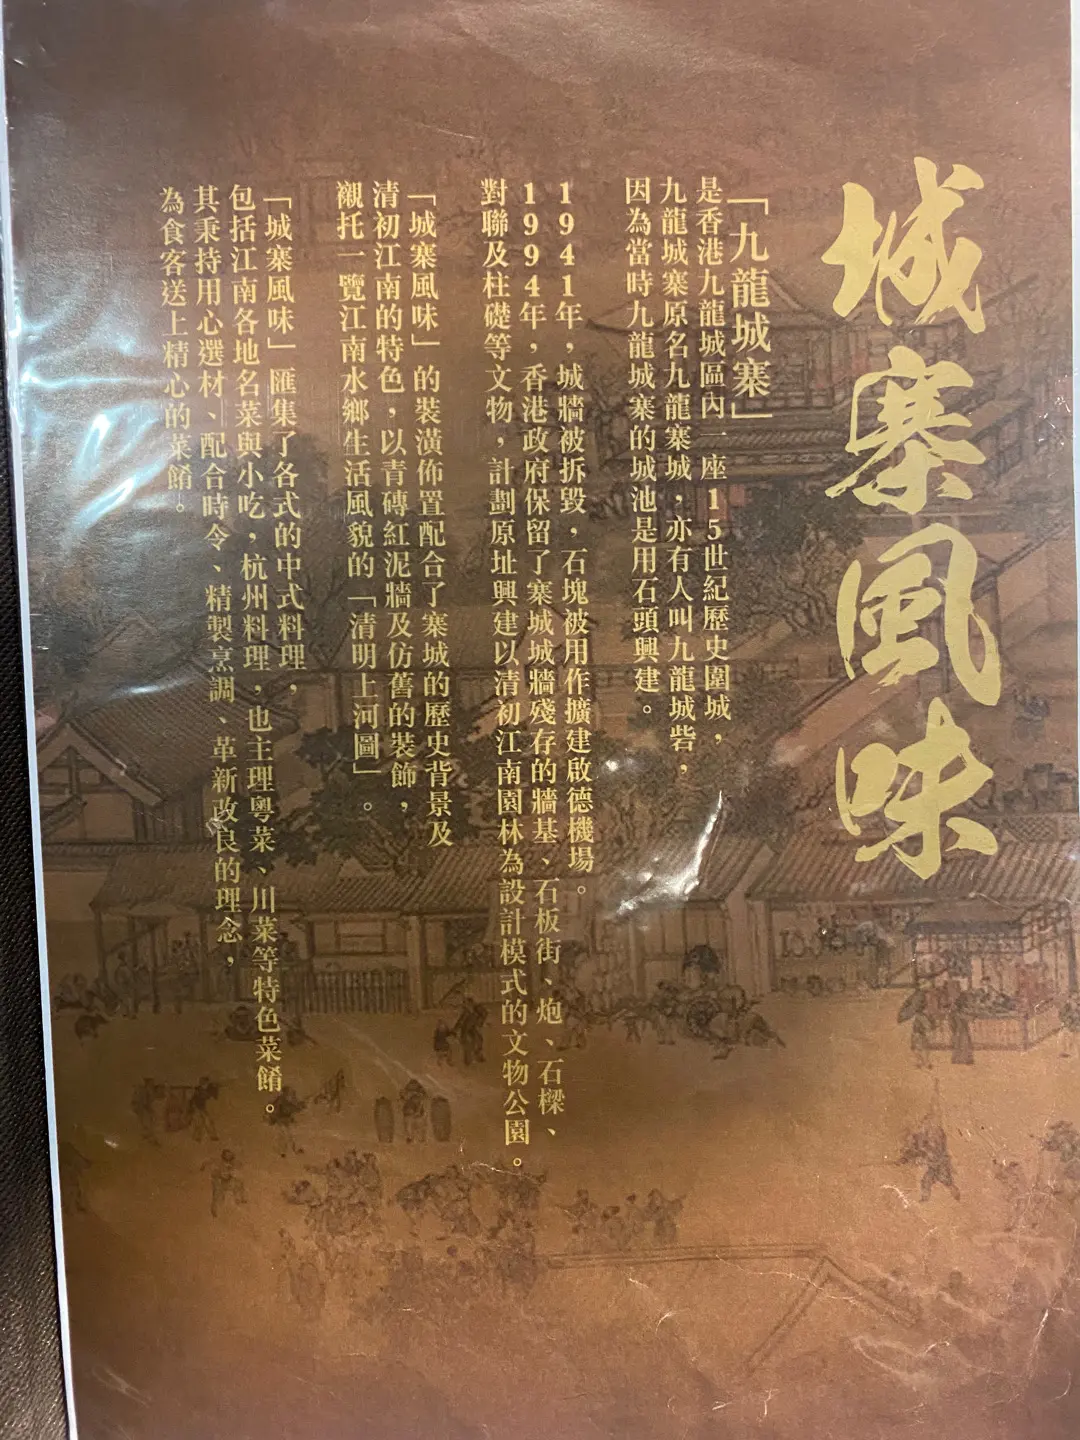 城寨風味
「九龍城寨」
是香港九龍城區內一座15世紀歷史圍城，
九龍城寨原名九龍寨城，亦有人叫九龍城砦，
因為當時九龍城寨的城池是用石頭興建。
1941年，城牆被拆毀，石塊被用作擴建啟德機場。
1994年，香港政府保留了寨城城牆殘存的牆基、石板街、炮、石樑、
對聯及柱礎等文物，計劃原址興建以清初江南園林為設計模式的文物公園。
「城寨風味」的裝潢佈置配合了寨城的歷史背景及
清初江南的特色，以青磚紅泥牆及仿舊的裝飾，
襯托一覽江南水鄉生活風貌的「清明上河圖」。
「城寨風味」匯集了各式的中式料理，
包括江南各地名菜與小吃，杭州料理，也主理粵菜、川菜等特色菜餚。
其秉持用心選材、配合時令、精製烹調、革新改良的理念，
為食客送上精心的菜餚。